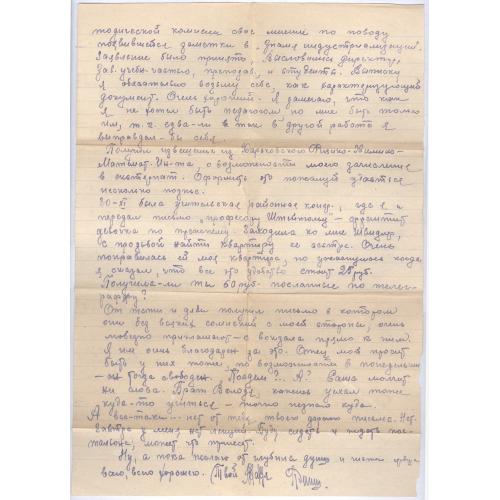 тодической комиссии свое мнение по поводу
появившейся заметки в "Знамя индустриализации".
Заявление было принято, высловились директор,
зав. учебн. частью, преподав. и студенты. Выписку
я обязательно возьму себе, как характеризующий
документ. Очень хороший. Я замечаю, что как
я не хотел быть педагогом но мне быть только
им, т. к. едва-ли в так в другой работе я
выправдал бы себя.
Получил извещение из Харьковского Физико-Химико-
Математ. Ин-та, о возможности моего зачисления
в экстернат. Оформить это пожалуй удастся
несколько поздже.
20-XI была учительская районная конф., где я и
передал письмо "професору
девочка по прежнему. Заходила ко мне
с прозьбой найти квартиру ее сестре. Очень
понравилась ей моя квартира, но ужаснулась когда
я сказал, что все это удобство стоит 25 руб.
Получила-ли ты 50 руб. посланные по теле-
графу?
От тети и дяди получил письмо в котором
они без всяких сомнений с моей стороны, очень
любезно приглашают с вокзала прямо к ним.
Я им очень благодарен за это. Отец мой просит
быть у них тоже по возможности в понедельник
- он тогда свободен. Поедем?.. А? Ваша молчит
ни слова. Брат Володя, кажется уехал тоже
куда-то учиться - точно незнаю куда.
А все-таки - нет от тебя твоего дорогого письма. Нет.
Завтра у меня нет лекций. Буду сидеть и ждать пос-
тальона, может что принесет.
Ну, а пока желаю от глубины души и
всего, всего хорошего. Твой